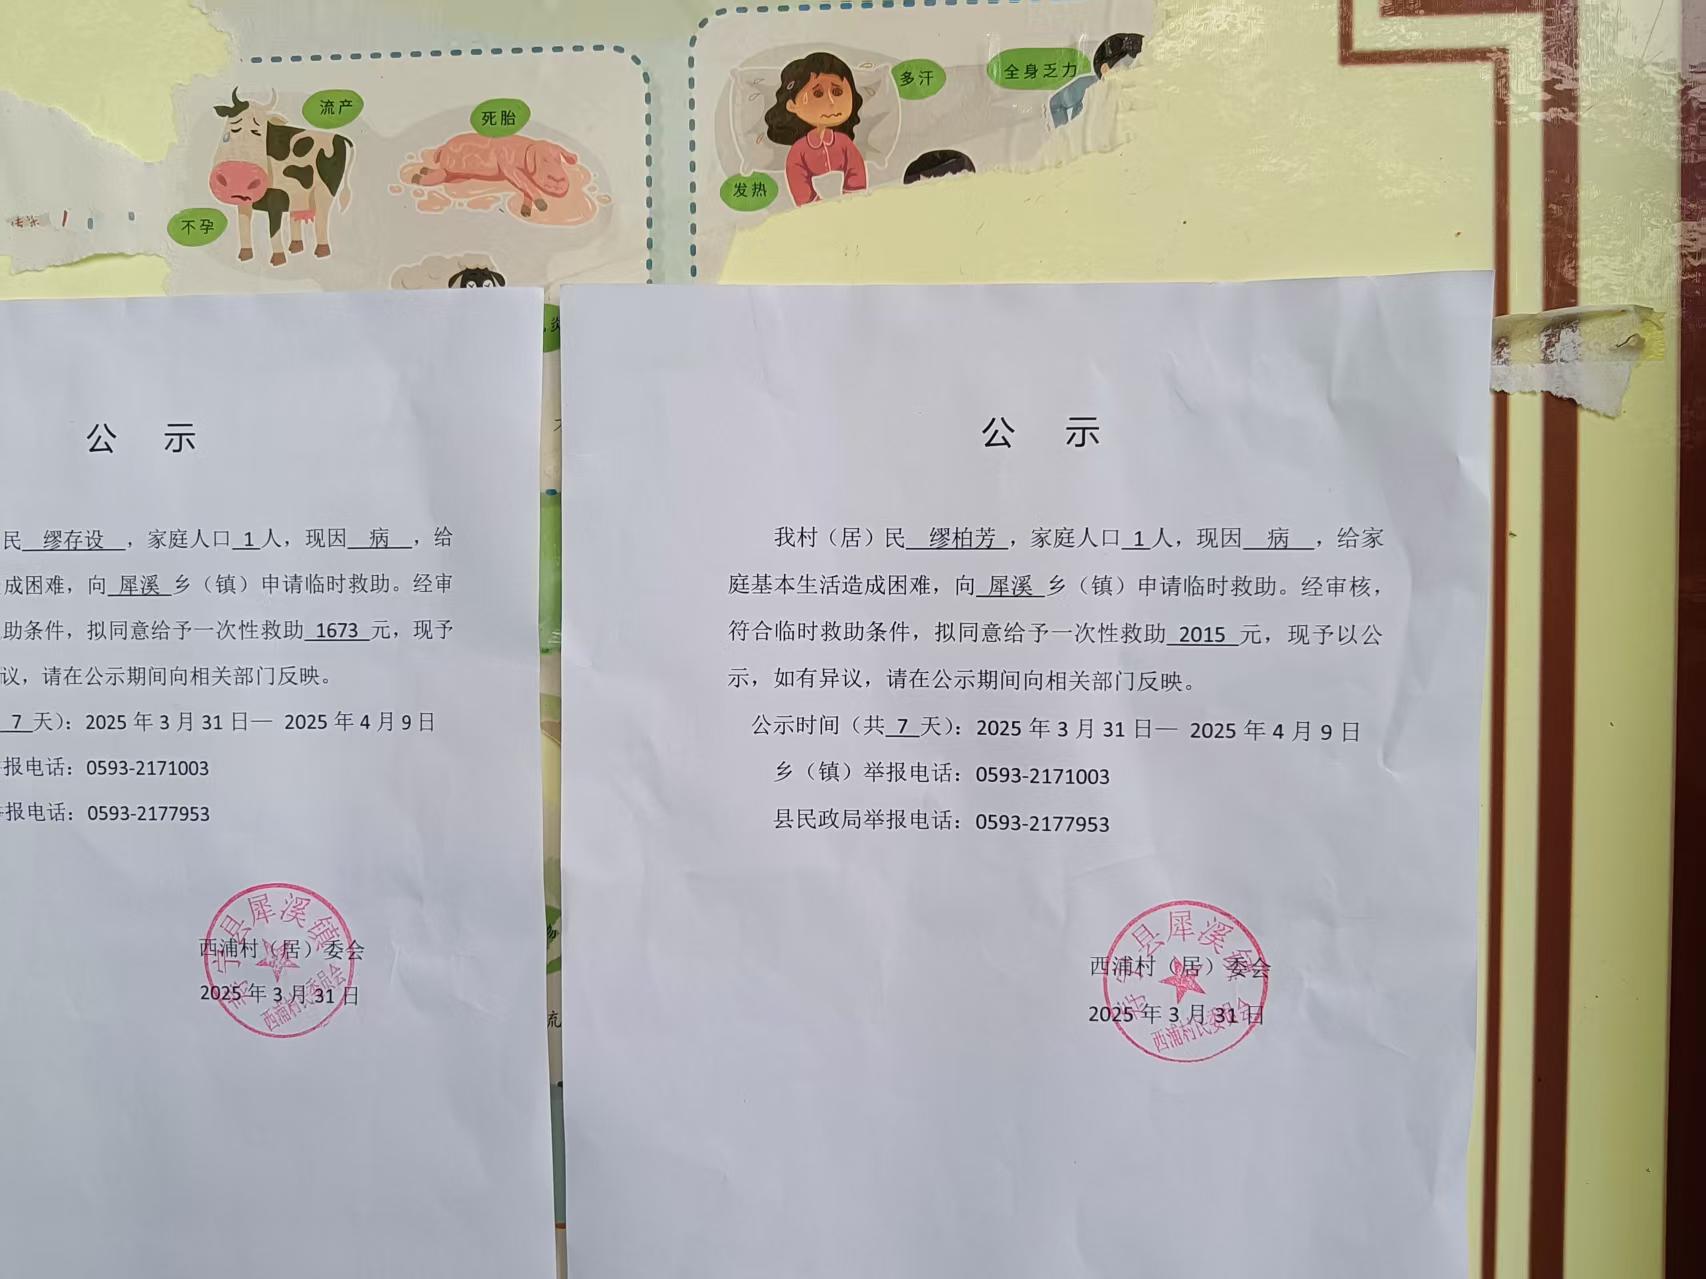 流产
死胎
不孕
多汗
全身乏力
发热
公 示
民 缪存设 ，家庭人口 1 人，现因 病 ，给
成困难，向 犀溪 乡（镇）申请临时救助。经审
助条件，拟同意给予一次性救助 1673 元，现予
议，请在公示期间向相关部门反映。
7 天）：2025 年 3 月 31 日— 2025 年 4 月 9 日
报电话：0593-2171003
举报电话：0593-2177953
西浦村（居）委会
2025 年 3 月 31 日
宁县犀溪镇
西浦村民委员会
公 示
我村（居）民 缪柏芳 ，家庭人口 1 人，现因 病 ，给家
庭基本生活造成困难，向 犀溪 乡（镇）申请临时救助。经审核，
符合临时救助条件，拟同意给予一次性救助 2015 元，现予以公
示，如有异议，请在公示期间向相关部门反映。
公示时间（共 7 天）：2025 年 3 月 31 日— 2025 年 4 月 9 日
乡（镇）举报电话：0593-2171003
县民政局举报电话：0593-2177953
西浦村（居）委会
2025 年 3 月 31 日
寿宁县犀溪镇
西浦村民委员会